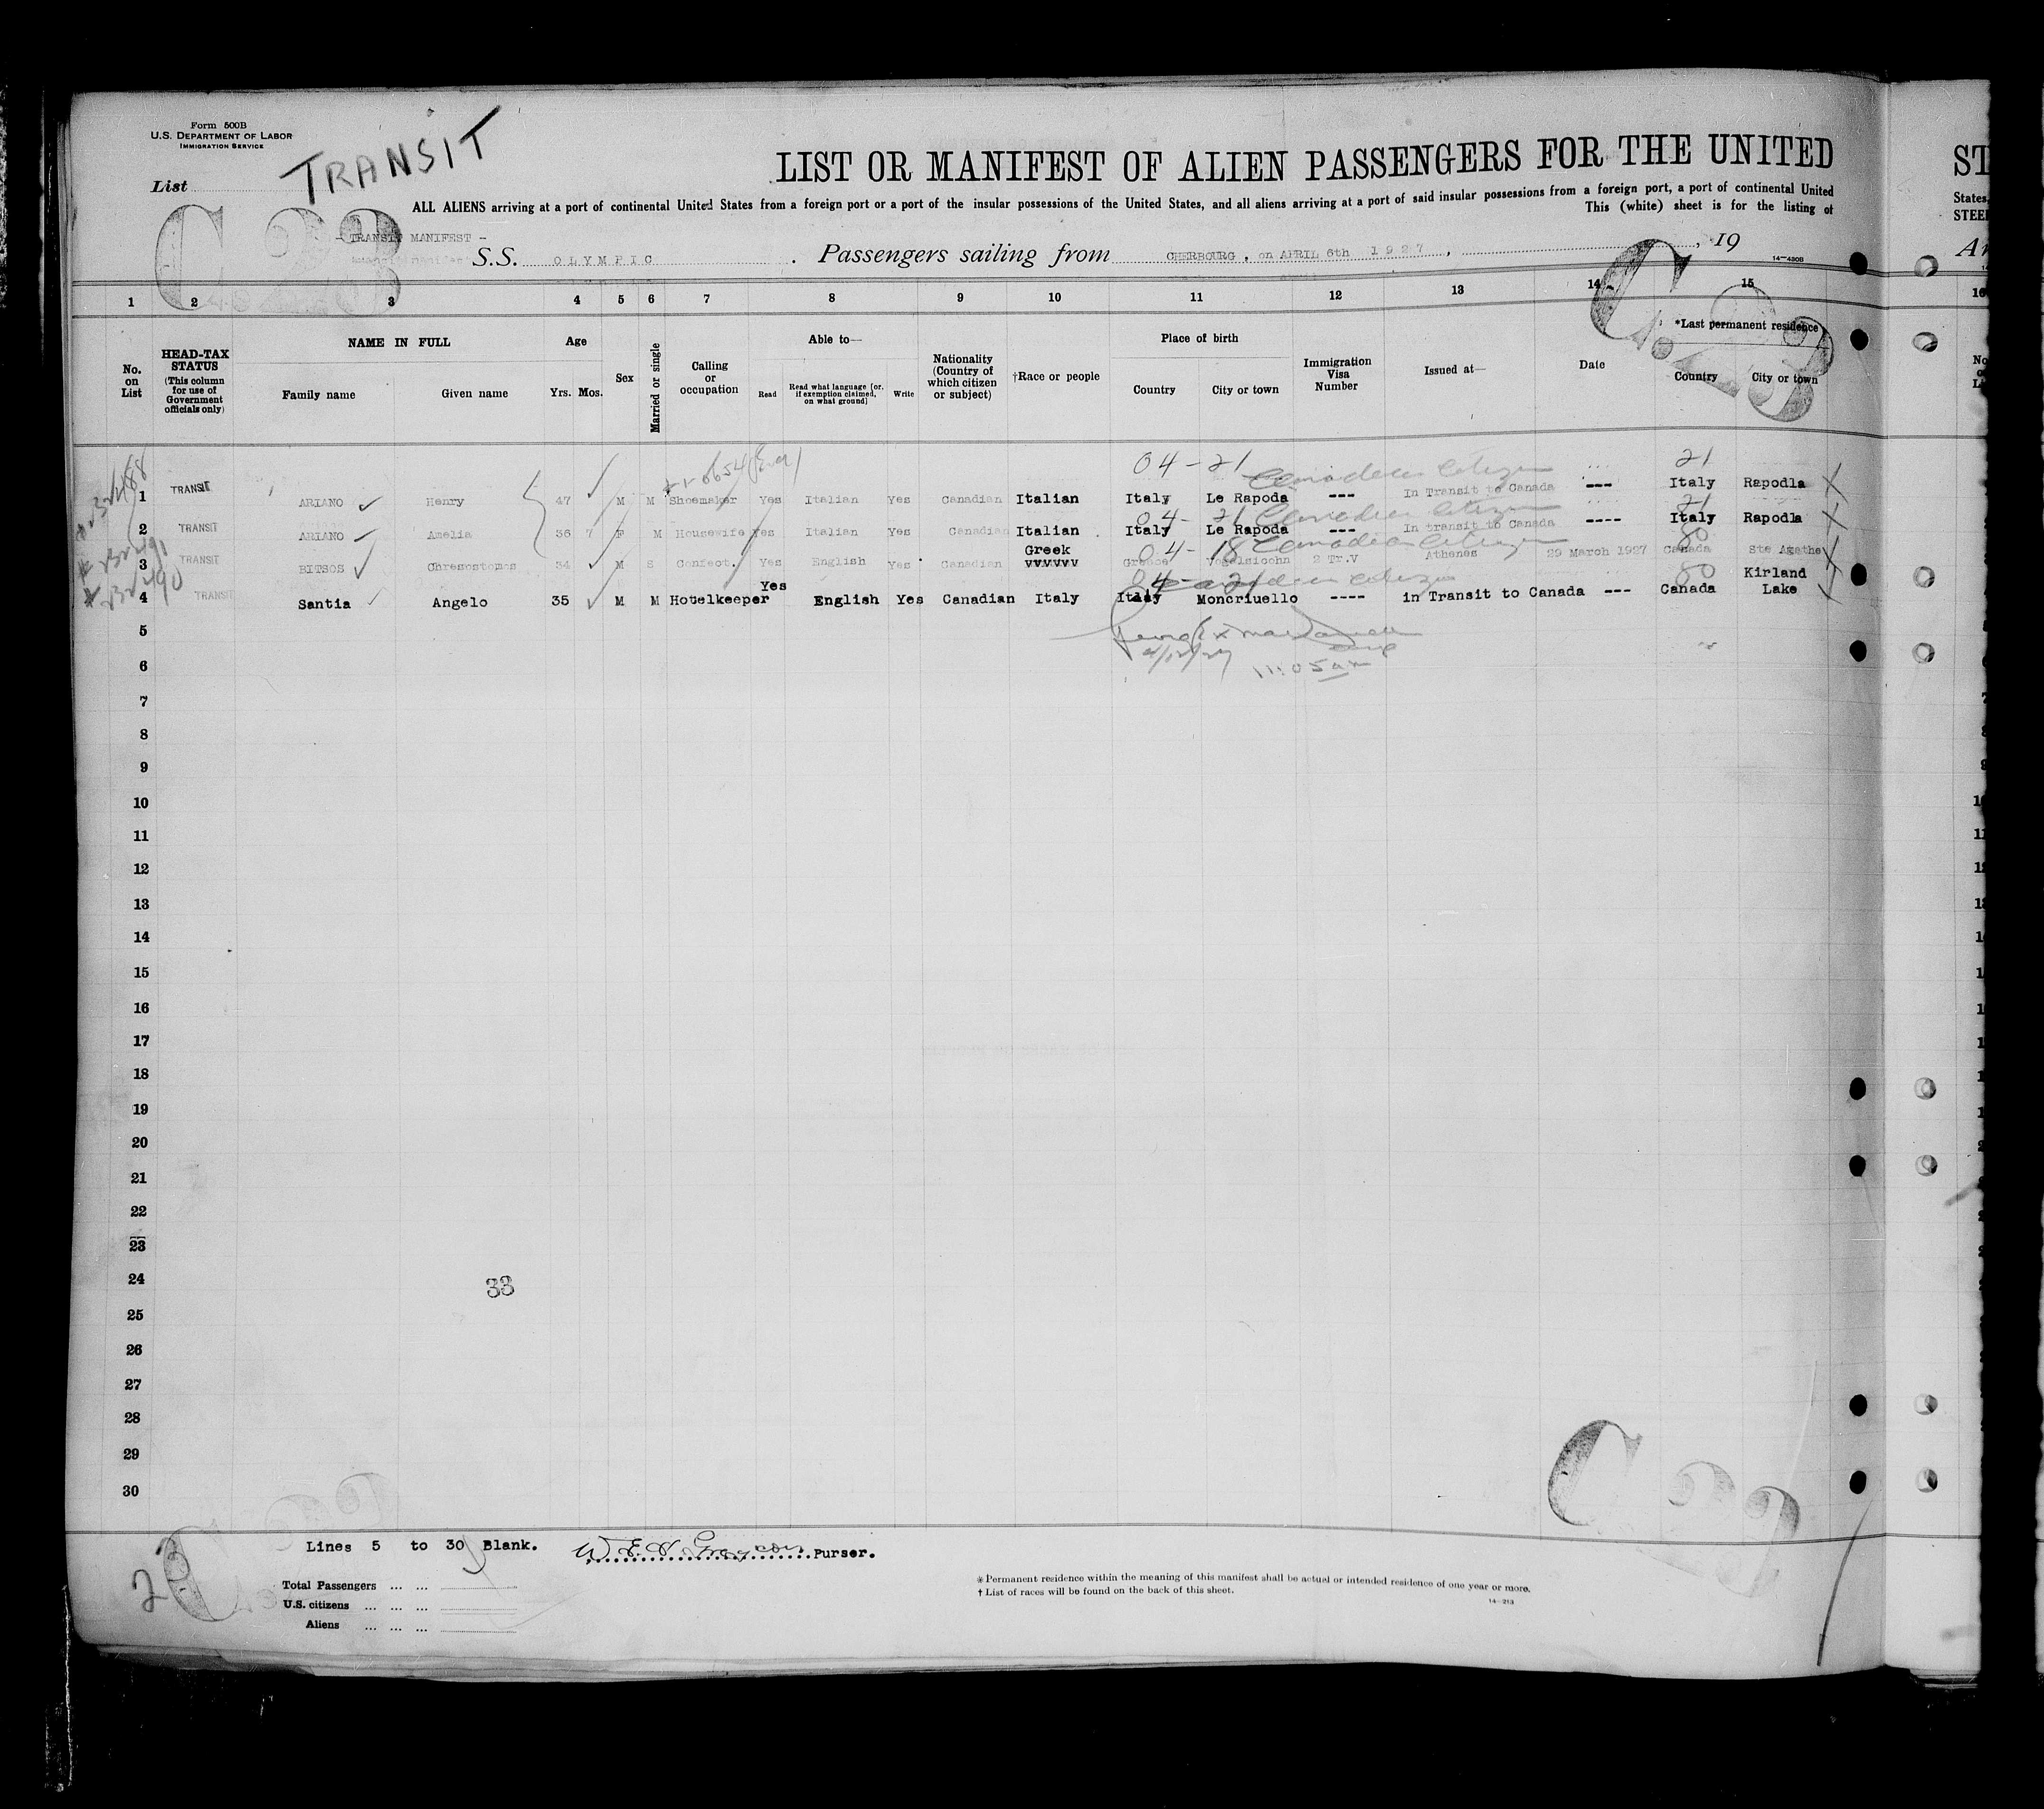 Form 500B
U.S. DEPARTMENT OF LABOR
IMMIGRATION SERVICE
TRANSIT
List
C 23
LIST OR MANIFEST OF ALIEN PASSENGERS FOR THE UNITED
ST
ALL ALIENS arriving at a port of continental United States from a foreign port or a port of the insular possessions of the United States, and all aliens arriving at a port of said insular possessions from a foreign port, a port of continental United
States,
This (white) sheet is for the listing of
STEE
- TRANSIT MANIFEST -
S.S. OLYMPIC. Passengers sailing from CHERBOURG, on APRIL 6th 1927, 19
14—430B
C. 23
1 2 3 4 5 6 7 8 9 10 11 12 13 14 15
16
No. on List
HEAD-TAX STATUS (This column for use of Government officials only)
NAME IN FULL
Family name Given name
Age
Yrs. Mos.
Sex
Married or single
Calling or occupation
Able to—
Read
Read what language [or, if exemption claimed, on what ground]
Write
Nationality (Country of which citizen or subject)
†Race or people
Place of birth
Country City or town
Immigration Visa Number
Issued at—
Date
*Last permanent residence
Country City or town
04-21 Canadian Citizen 21
1 TRANSIT ARIANO Henry 47 M M Shoemaker Yes Italian Yes Canadian Italian Italy Le Rapoda --- In Transit to Canada --- Italy Rapodla X
04-21 Canadian Citizen 21
2 TRANSIT ARIANO Amelia 36 7 F M Housewife Yes Italian Yes Canadian Italian Italy Le Rapoda --- In transit to Canada ---- Italy Rapodla X
04-18 Canadian Citizen 80
3 TRANSIT BITSOS Chresostomos 34 M S Confect. Yes English Yes Canadian Greek Greece 2 Tr.V Athenes 29 March 1927 Canada Ste Agathe X
04-21 Canadian Citizen 80
4 TRANSIT Santia Angelo 35 M M Hotelkeeper Yes English Yes Canadian Italy Italy Moncriuello ---- in Transit to Canada --- Canada Kirland Lake
5
4/12/27
6
11:05 am
7
8
9
10
11
12
13
14
15
16
17
18
19
20
21
22
23
24
33
25
26
27
28
29
30
C 23
Lines 5 to 30 Blank. Purser.
23
Total Passengers ... ...
U.S. citizens ... ... ...
Aliens ... ... ...
* Permanent residence within the meaning of this manifest shall be actual or intended residence of one year or more.
† List of races will be found on the back of this sheet.
14—213